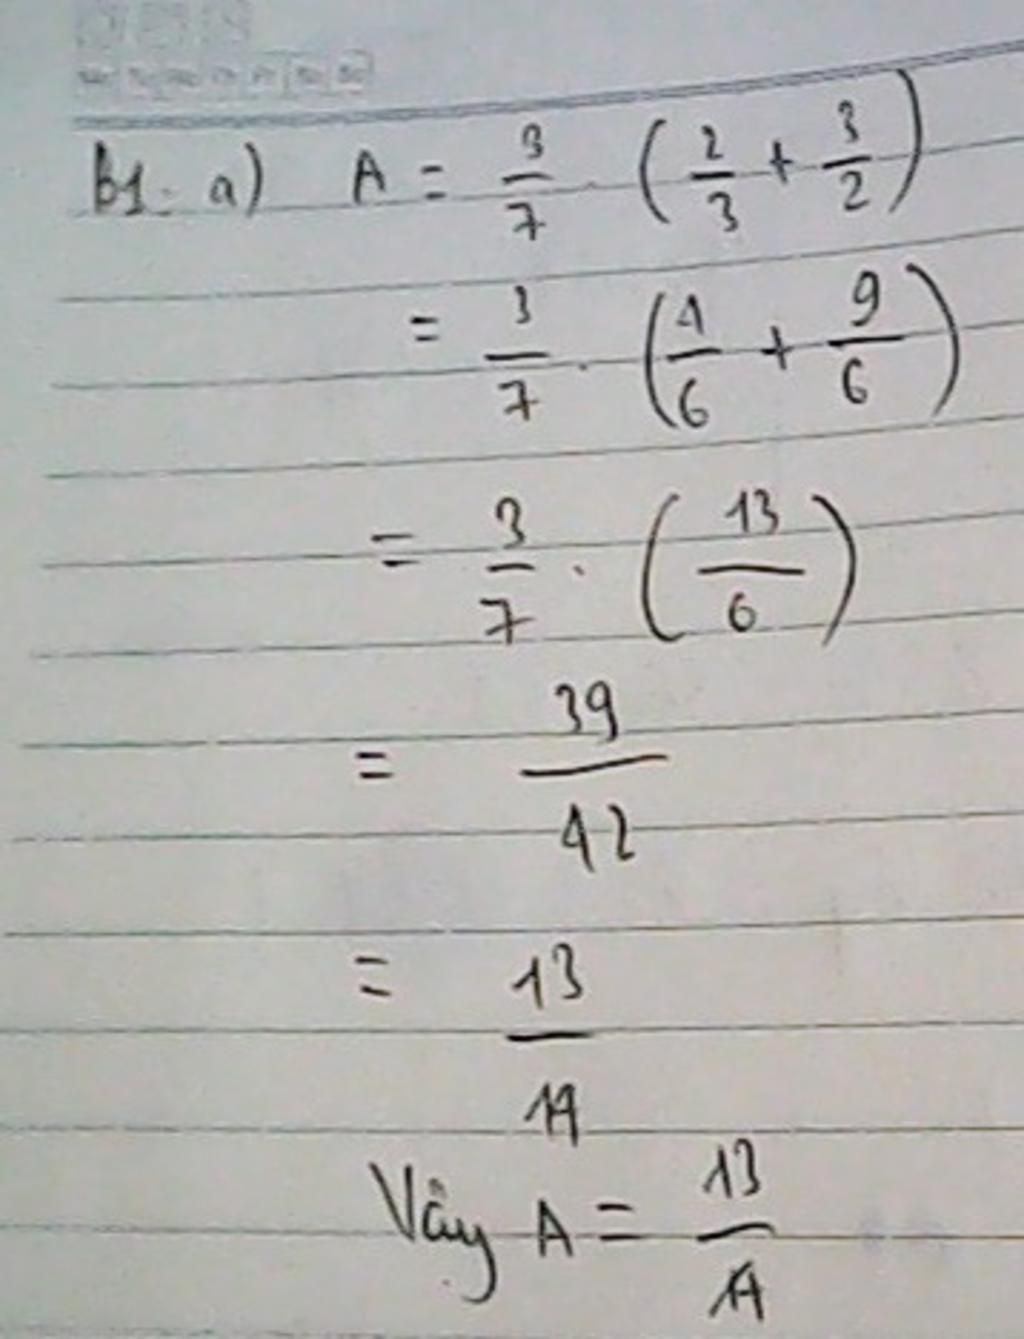 b1. a) A = 3/7 . (2/3 + 3/2)
= 3/7 . (4/6 + 9/6)
= 3/7 . (13/6)
= 39/42
= 13/14
Vậy A = 13/14